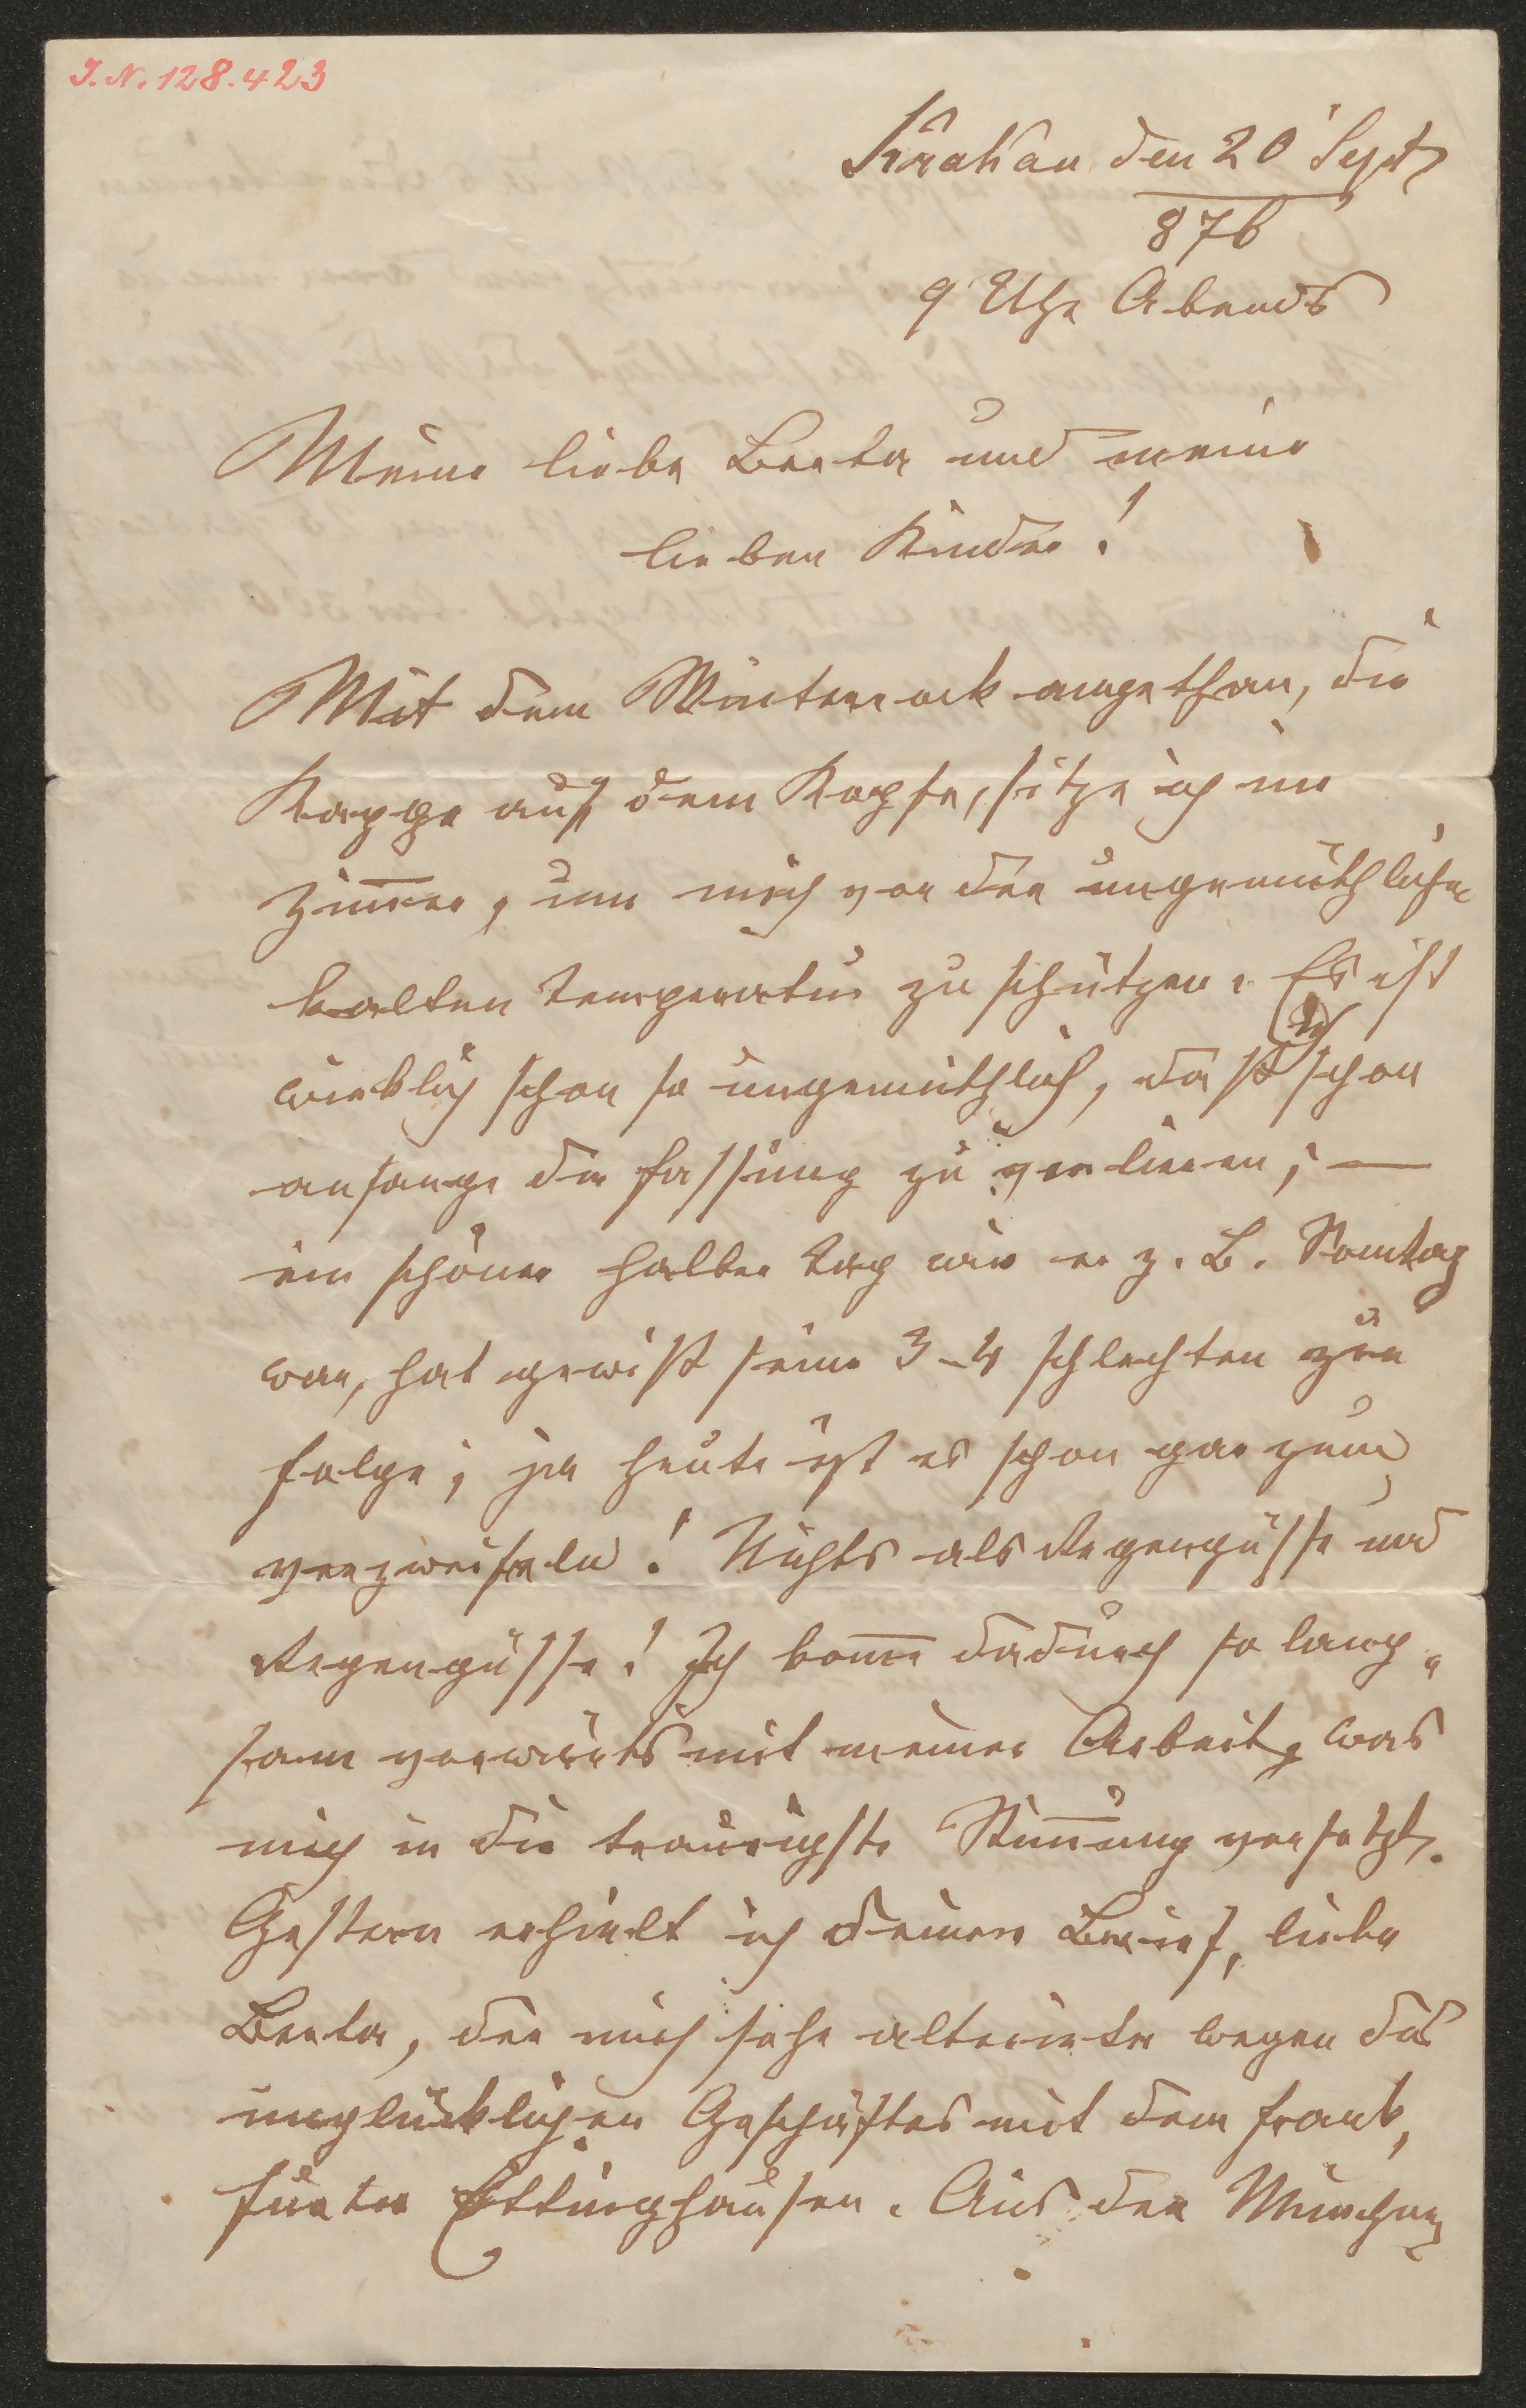 I. N. 128.423
Krakau den 20' Sept
876
9 Uhr Abends
Meine liebe Berta und meine
lieben Kinder!
Mit dem Winterrock angethan, die
Kappe auf dem Kopfe, sitze ich im
Zim̅er, um mich vor der ungemüthlichen
kalten Temperatur zu schützen. Es ist
wirklich schon so ungemüthlich, daß ich schon
anfange die Fassung zu verlieren; —
ein schöner halber Tag wie er z. B. Sonntag
war, hat gewiß seine 3-4 schlechten zur
Folge; ja heute ist es schon gar zum
verzweifeln! Nichts als Regengüsse und
Regengüsse! Ich kom̅e dadurch so lang-
sam vorwärts mit meiner Arbeit, was
mich in die traurigste Stim̅ung versetzt.
Gestern erhielt ich Deinen Brief, liebe
Berta, der mich sehr alterirte wegen des
unglücklichen Geschäftes mit dem Frank,
furter Ettinghausen. Aus der Münchner